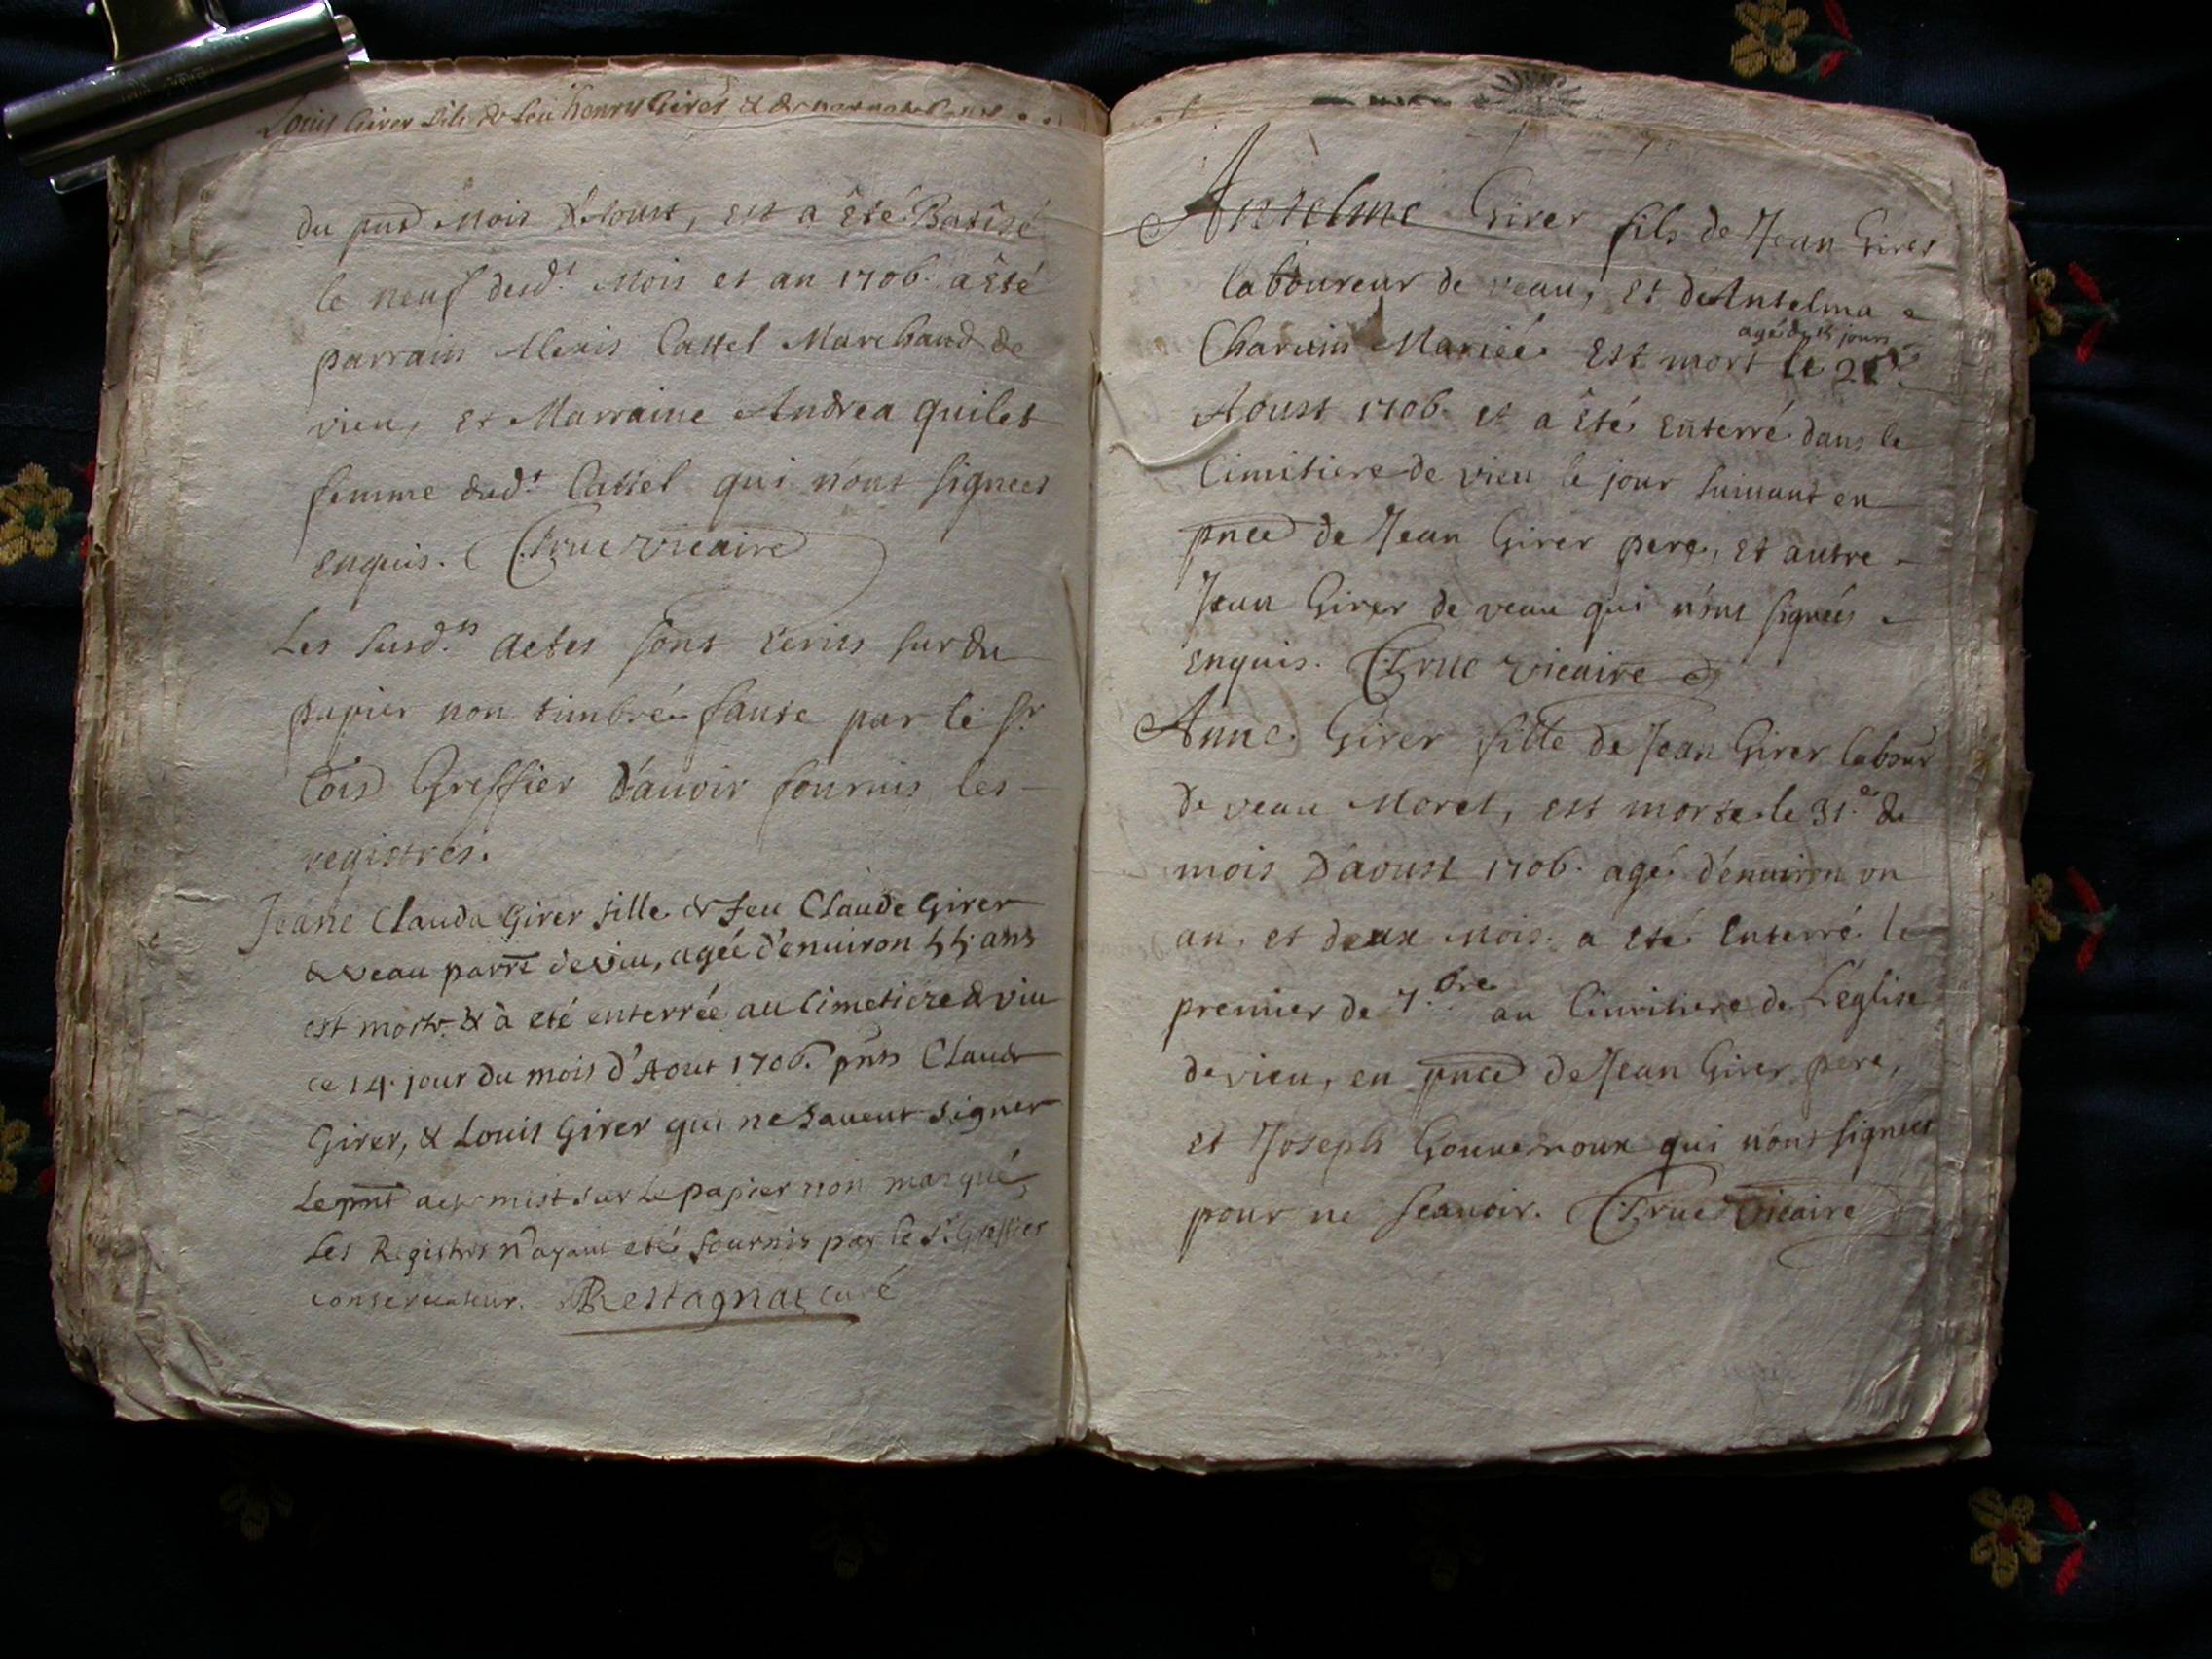 Louis Girer fils de feu henry Girer & de
du pnt Mois d'Aoust, est a Eté Batisé
le neuf desd.t Mois et an 1706. a Esté
parrain Alexis Cattel Marchand de
vieu, et Marraine Andrea quilet
femme dud.t Cattel qui n'ont signees
enquis. Truc vicaire
Les susd.ts actes sont Ecrits sur du
papier non timbré faute par le sr.
Cois Greffier d'auoir fournis les
registres.
Jeane Clauda Girer fille de feu Claude Girer
de veau parre de viu, agée d'enuiron 55 ans
est morte & à eté enterrée au Cimetiere de viu
ce 14. jour du mois d'Aout 1706. pnts Claude
Girer, & Louis Girer qui ne sauent signer
Le pnt acte mist sur le papier non marqué,
Les Registres n'ayant eté fournis par le Sr. Greffier
conseruateur. Restagnat curé
Anselme Girer fils de Jean Girer
laboureur de veau, et de Anselma
agé de 15 jours
Charuin Mariée Est mort le
Aoust 1706. et a Eté Enterré dans le
Cimitiere de vieu le jour suiuant en
pnce de Jean Girer pere, et autre
Jean Girer de veau qui n'ont signés
enquis. Truc vicaire
Anne Girer fille de Jean Girer labour
de veau Morel, est morte le 31.e de
mois D'aoust 1706. agé d'enuiron un
an, et deux Mois. a eté Enterré le
premier de 7.bre au Cimitiere de L'église
de vieu, en pnce de Jean Girer pere,
et Joseph Gouuernoux qui n'ont signees
pour ne scauoir. Truc Vicaire